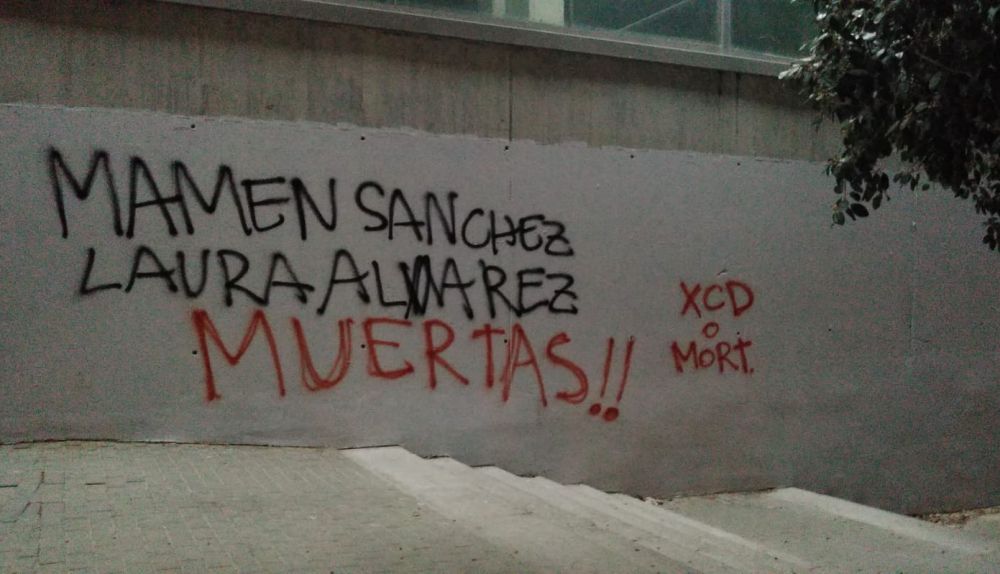 MAMEN SANCHEZ
LAURA ALVAREZ
MUERTAS!!
XCD
O
MORT.